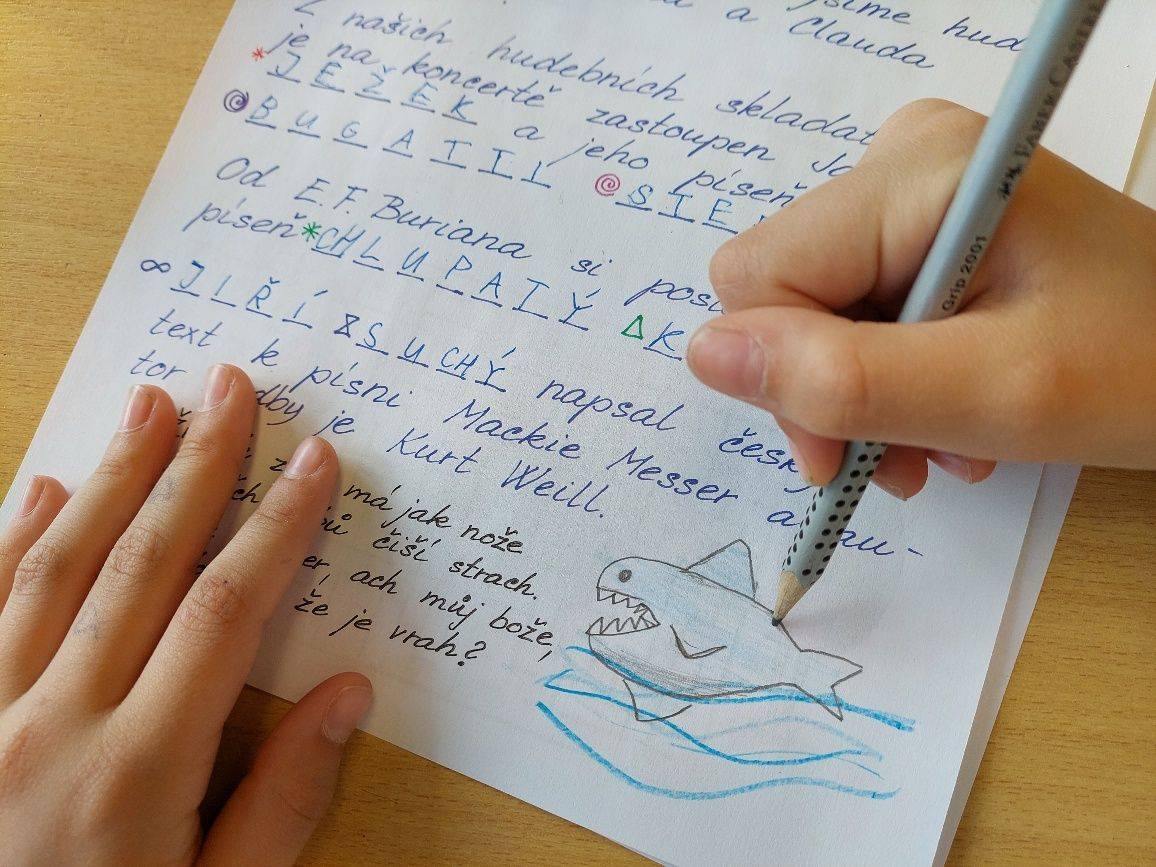 jsme hud
a Clauda
Z našich hudebních skladat
je na koncertě zastoupen
* JEŽEK a jeho píseň
BUGATTI STE
Od E. F. Buriana si
píseň *CHLUPATÝ Δ K
∞ JIŘÍ SUCHÝ napsal česk
text k písni Mackie Messer a au-
tor dby je Kurt Weill.
má jak nože
čiší strach.
ach můj bože,
že je vrah?
Grip 2001 FABER-CASTE